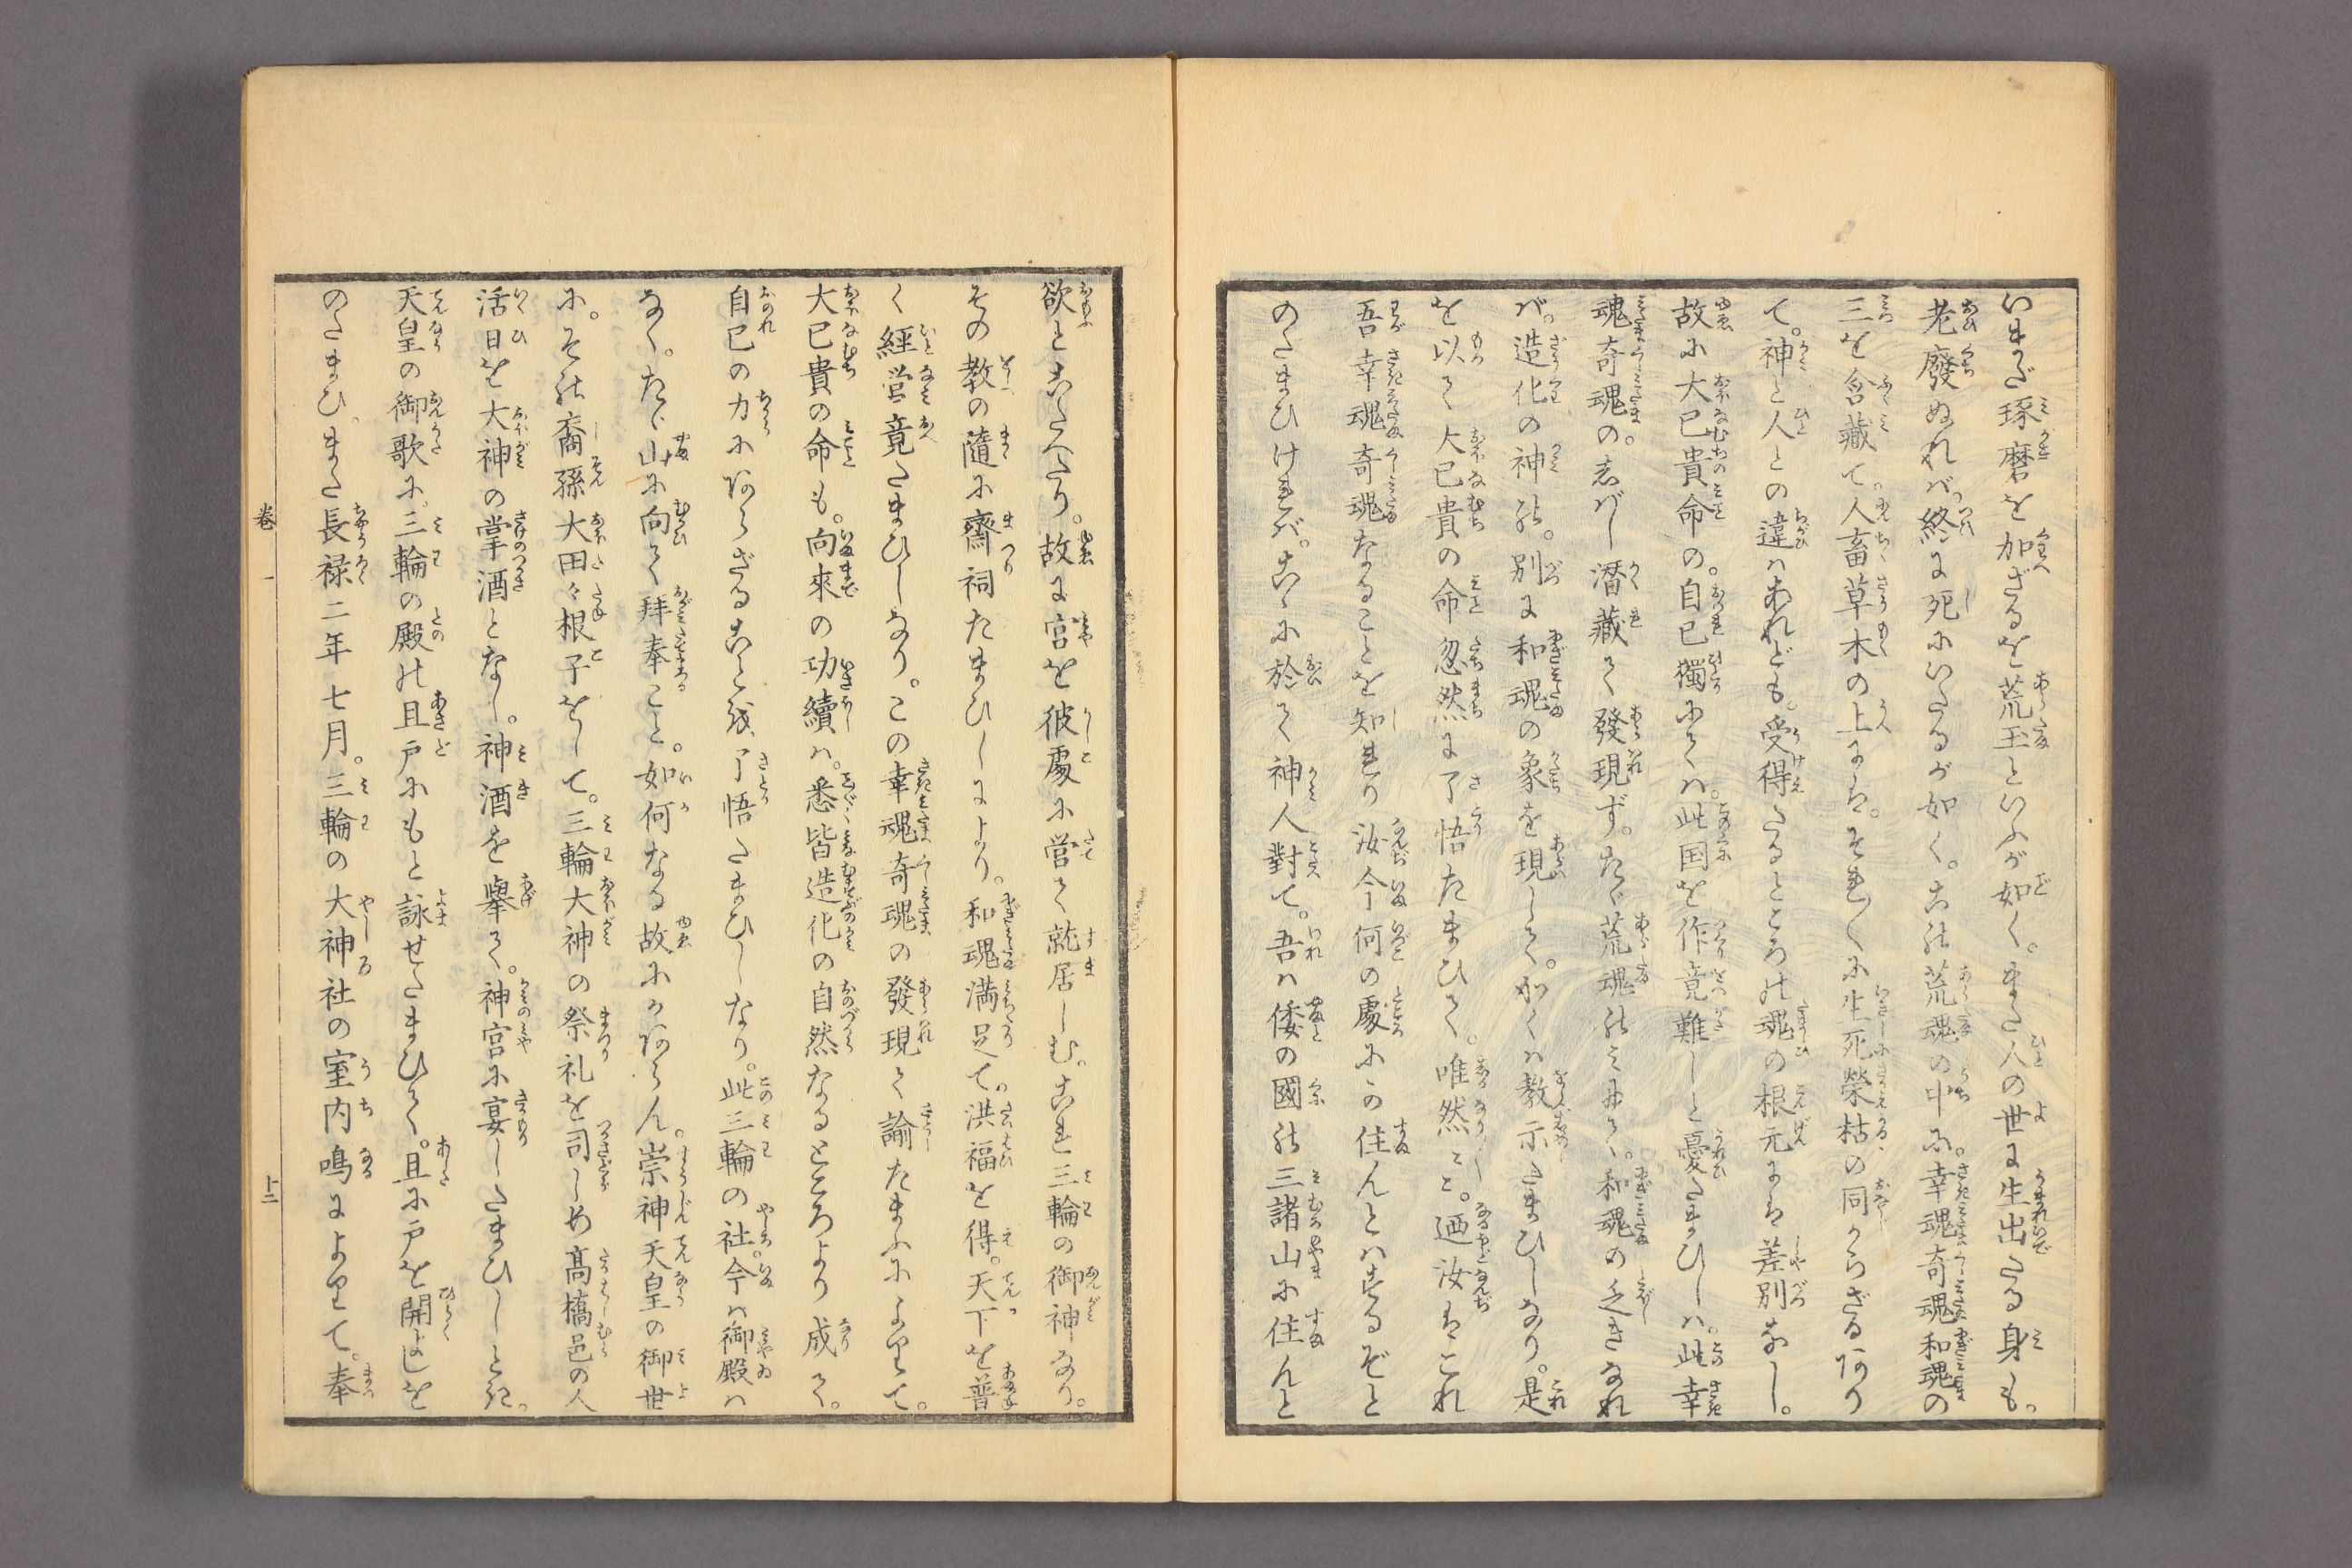 いまだ琢磨を加ざるを荒玉といふが如く。また人の世に生出たる身も。
老廢ぬれバ。終に死にいたるが如く。この荒魂の中に。幸魂奇魂和魂の
三を含藏て。人畜草木の上にも。それ〳〵に生死榮枯の同からざるあり
て。神と人との違ハあれども。受得たるところの魂の根元にハ差別なし。
故に大己貴命の。自己獨にてハ。此国を作竟難しと憂たまひしハ。此幸
魂奇魂の。しばし潛藏て發現ず。たゞ荒魂のミにて。和魂の乏きなれ
バ。造化の神の。別に和魂の象を現して。かくハ教示たまひしなり。是
を以て大己貴の命忽然に了悟たまひて。唯然〻。廼汝ハこれ
吾幸魂奇魂なることを知れり汝今何の處にか住んとハするぞと
のたまひければ。こゝに於て神人對て。吾ハ倭の國の三諸山に住んと
欲とこたへたり。故に宮を彼處に営て就居しむ。これ三輪の御神なり。
その教の隨に齋祠たまひしにより。和魂満足て。洪福を得。天下を普
く經営竟たまひしなり。この幸魂奇魂の發現て諭たまふによりて。
大己貴の命も。向來の功績ハ。悉皆造化の自然なるところより成て。
自己の力にあらざることを了悟たまひしなり。此三輪の社。今ハ御殿ハ
なく。たゞ山に向て拜奉こと。如何なる故にかあらん。崇神天皇の御世
に。その裔孫大田々根子をして。三輪大神の祭礼を司しめ髙橋邑の人
活日を大神の掌酒となし。神酒を擧て。神宮に宴したまひしとき。
天皇の御歌に。三輪の殿の且戸にもと詠せたまひて。且に戸を開よしを
のたまひ。また長禄二年七月。三輪の大神社の室内鳴によりて。奉
巻一
十二